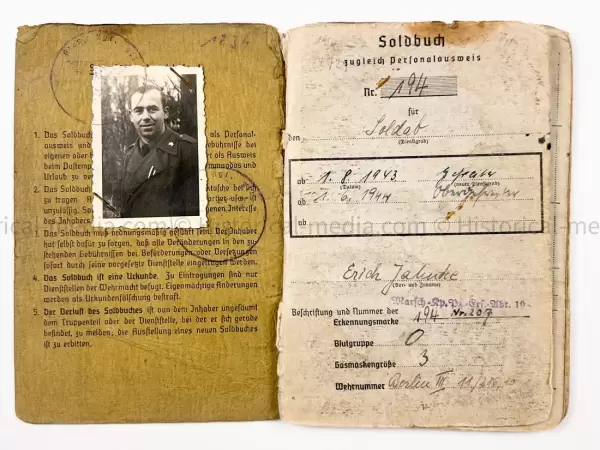 1234
1. Das Soldbuch
als Personal-
ausweis und
Gebührnisse bei
eigenen oder
als Ausweis
beim Postempfang
Kommandos und
Urlaub zu
2. Das Soldbuch
tasche bei sich
zu tragen.
unzulässig.
eigenen Interesse
des Inhabers.
3. Das Soldbuch muß ordnungsmäßig geführt sein. Der Inhaber
hat selbst dafür zu sorgen, daß alle Veränderungen in den zu-
stehenden Gebührnissen bei Beförderungen oder Versetzungen
sofort durch seine vorgesetzte Dienststelle eingetragen werden.
4. Das Soldbuch ist eine Urkunde. Zu Eintragungen sind nur
Dienststellen der Wehrmacht befugt. Eigenmächtige Änderungen
werden als Urkundenfälschung bestraft.
5. Der Verlust des Soldbuches ist von dem Inhaber ungesäumt
dem Truppenteil oder der Dienststelle, bei der er sich gerade
befindet, zu melden; die Ausstellung eines neuen Soldbuches ist
zu erbitten.
Soldbuch
zugleich Personalausweis
Nr. 194
für
den Soldat
(Dienstgrad)
ab 1. 8. 1943 Gefreiter
(Datum) (neuer Dienstgrad)
ab 1. 6. 1944 Obergefreiter
ab
Erich
(Vor- und Zuname)
Marsch-Kp. Pz. Ers. Abt. 10
Beschriftung und Nummer der
Erkennungsmarke 194 Nr. 207
Blutgruppe O
Gasmaskengröße 3
Wehrnummer Berlin III
© Historical-media.com